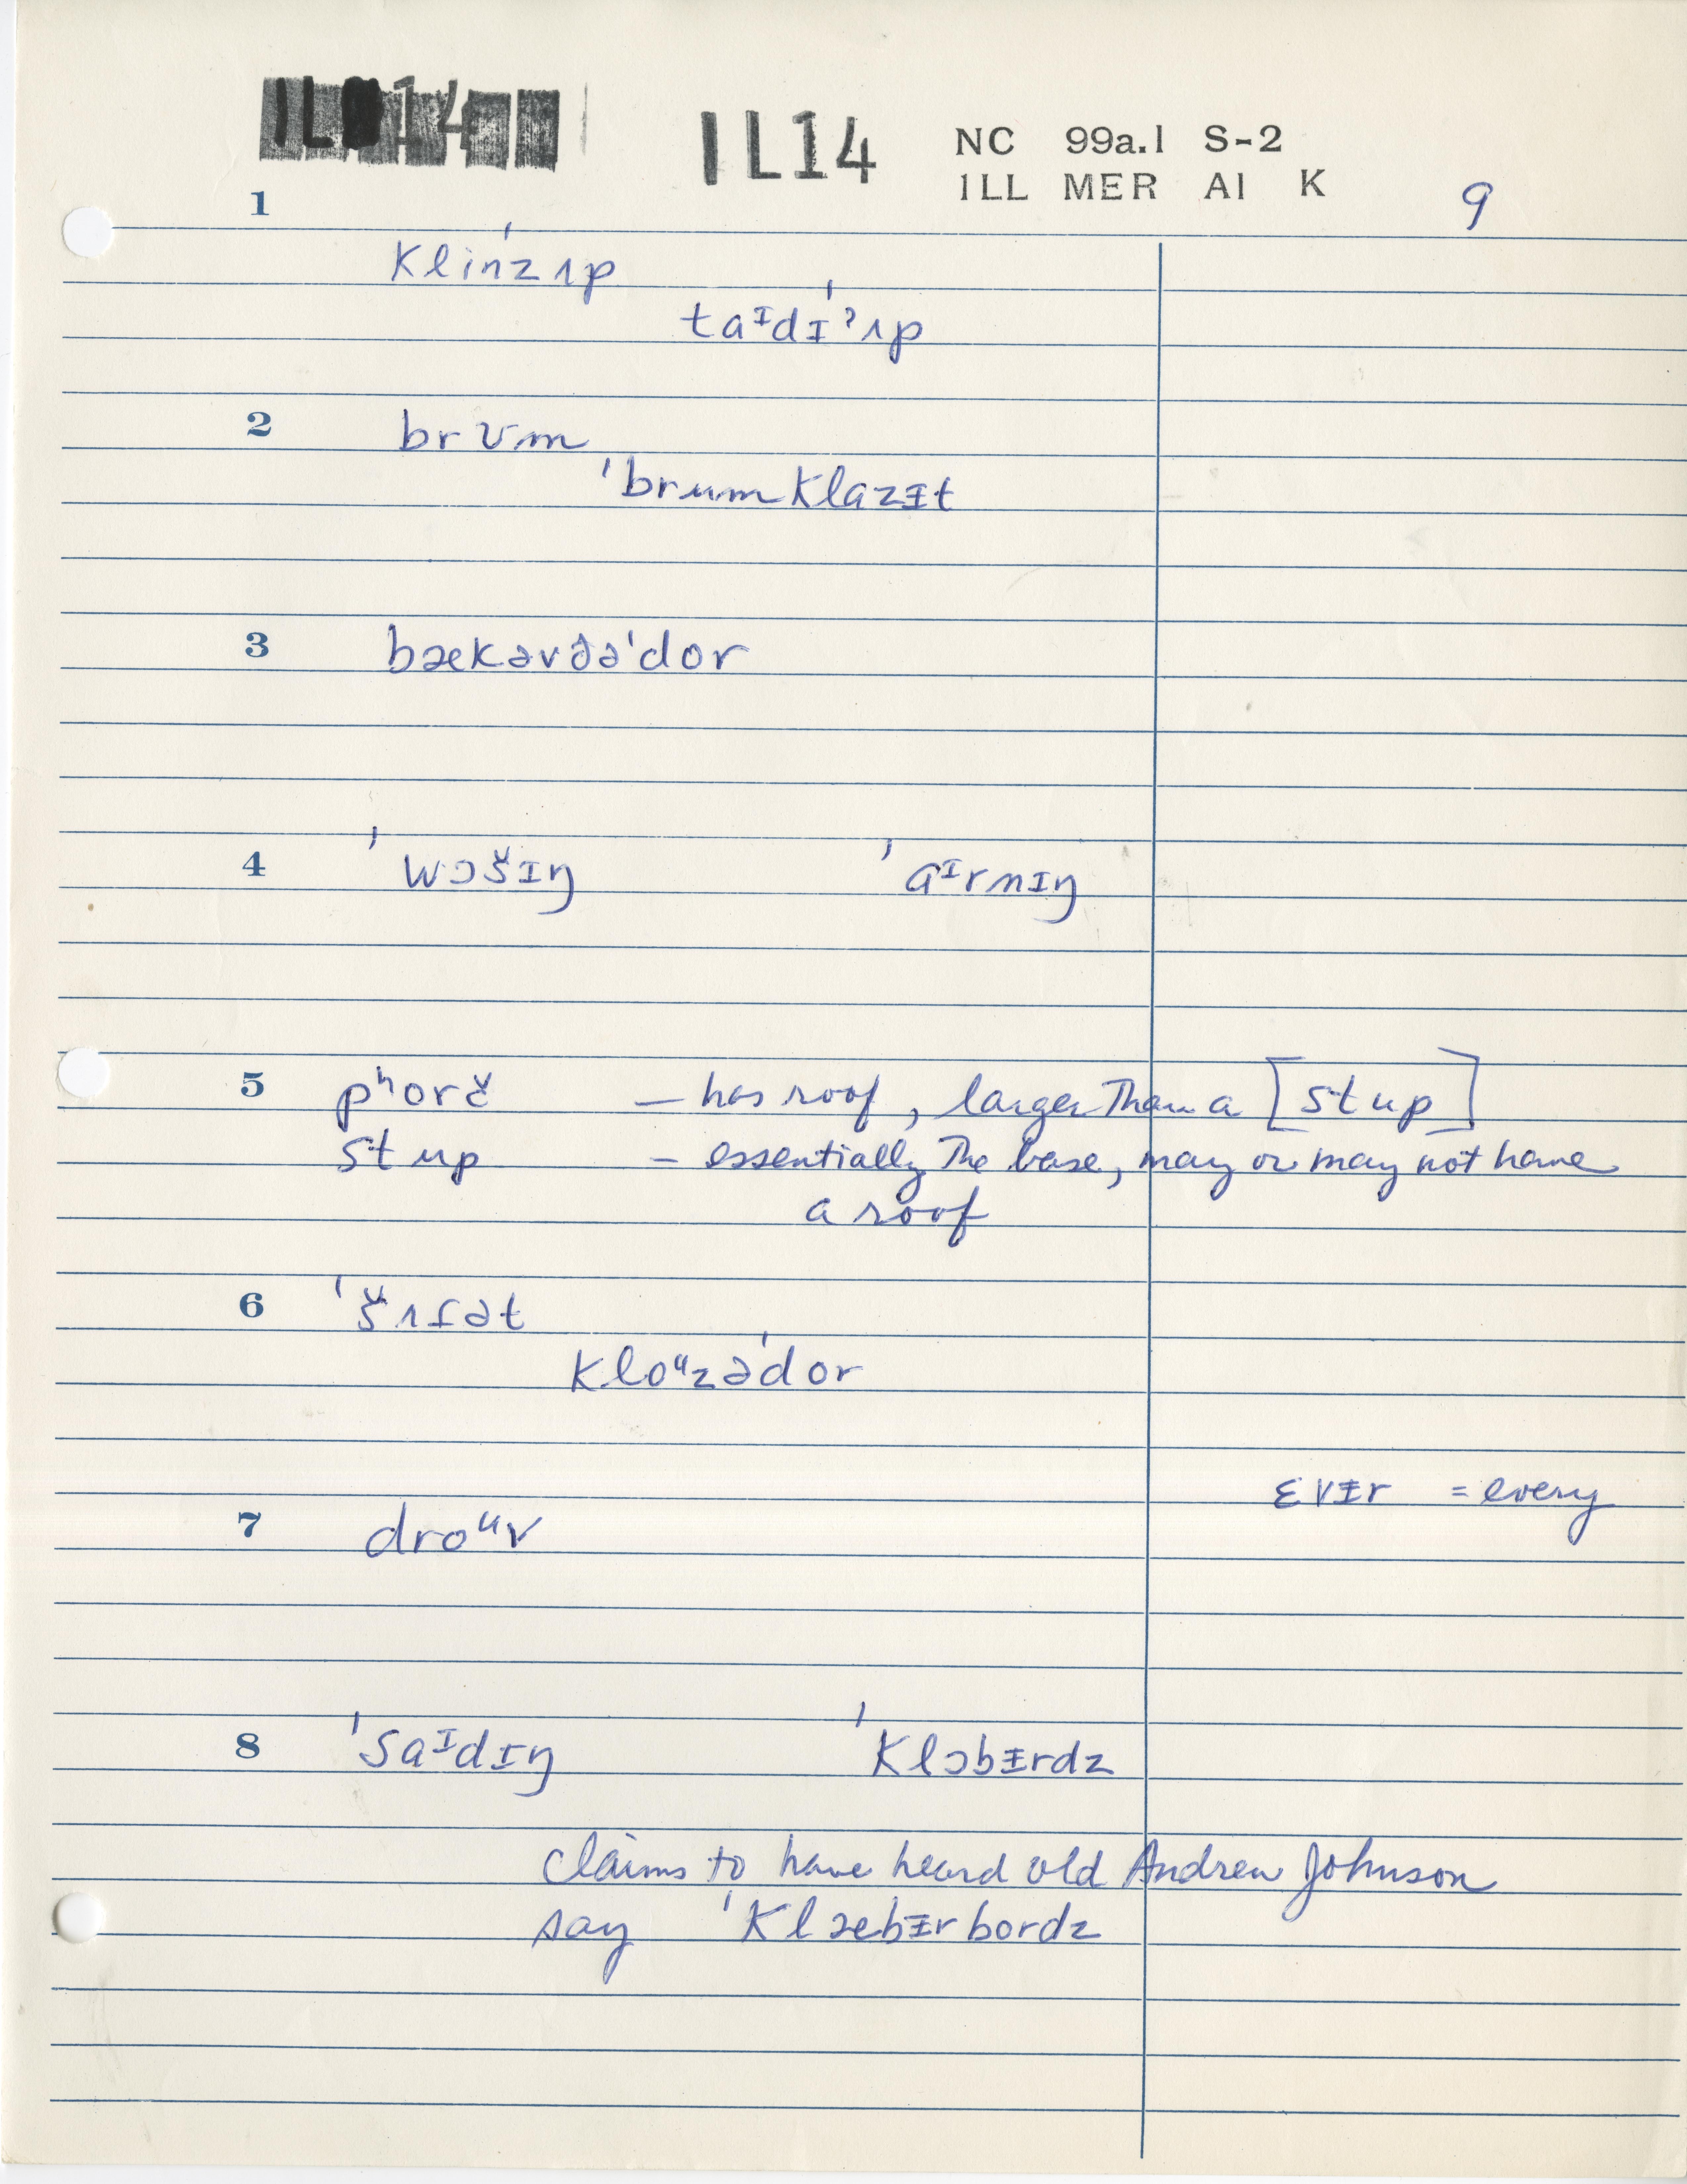 IL14
IL14 NC 99a.1 S-2
ILL MER A1 K 9
1
klin'zʌp
taᶦdɪ'ˀʌp
2 brʊm
'brumklazɪt
3 bækəvðə'dor
4 'wɔšɪŋ 'aᶦrnɪŋ
5 pʰorč — has roof, larger than a [stup]
stup — essentially the base, may or may not have
a roof
6 'šʌtət
kloᵘzə'dor
ɛvɪr = every
7 droᵘv
8 'saᶦdɪŋ 'klɔbɪrdz
claims to have heard old Andrew Johnson
say 'klæbɪrbordz